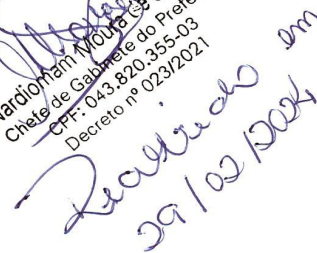 Nardiomam Moura
Chefe de Gabinete do Prefe
CPF: 043.820.355-03
Decreto nº 023/2021
em
29/02/2024